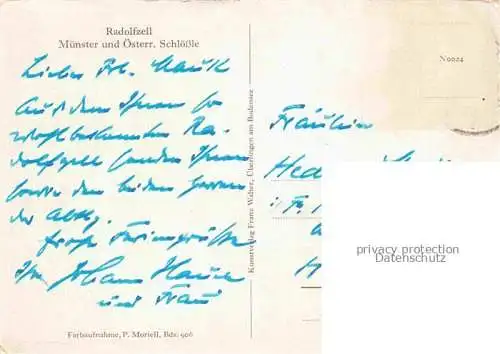 Radolfzell
Münster und Österr. Schlößle
Liebes Frl. Mauch
Aus dem Ihnen so
wohlbekannten Ra-
dolfzell senden Ihnen
sowie den beiden Herren
der Abtlg.
frohe Feriengrüße
Ihr Johann
und Frau
Farbaufnahme, P. Moriell, Bdz: 906
Kunstverlag Franz Walser, Überlingen am Bodensee
N0024
Fräulein
Hed
privacy protection
Datenschutz